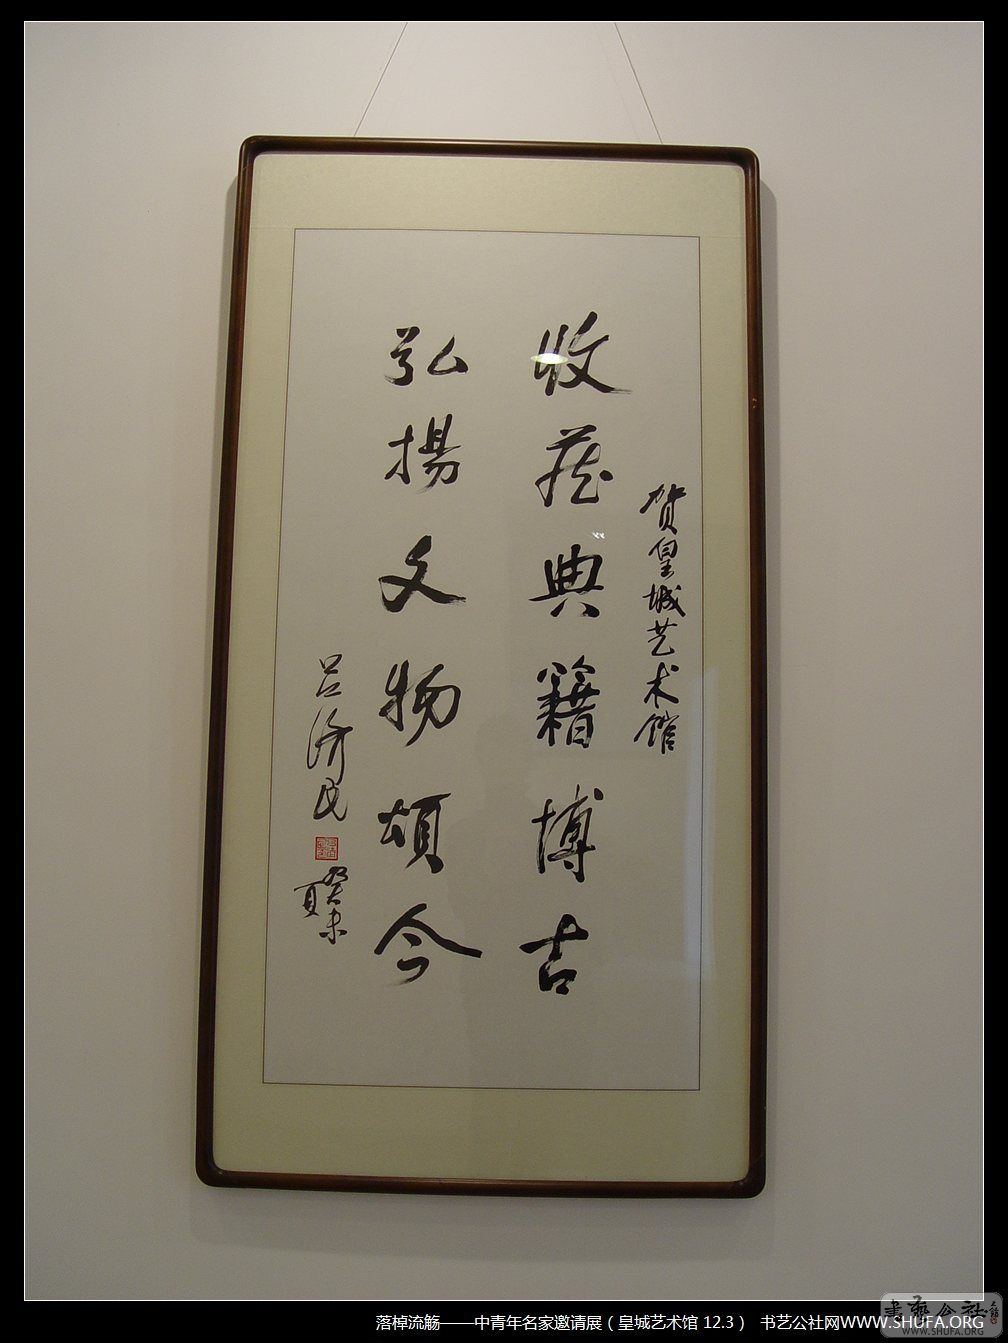 贺皇城艺术馆
收藏典籍博古
弘揚文物頌今
吕济民
癸未
夏
落棹流觞——中青年名家邀请展（皇城艺术馆 12.3） 书艺公社网WWW.SHUFA.ORG
書藝公社
WWW.SHUFA.ORG